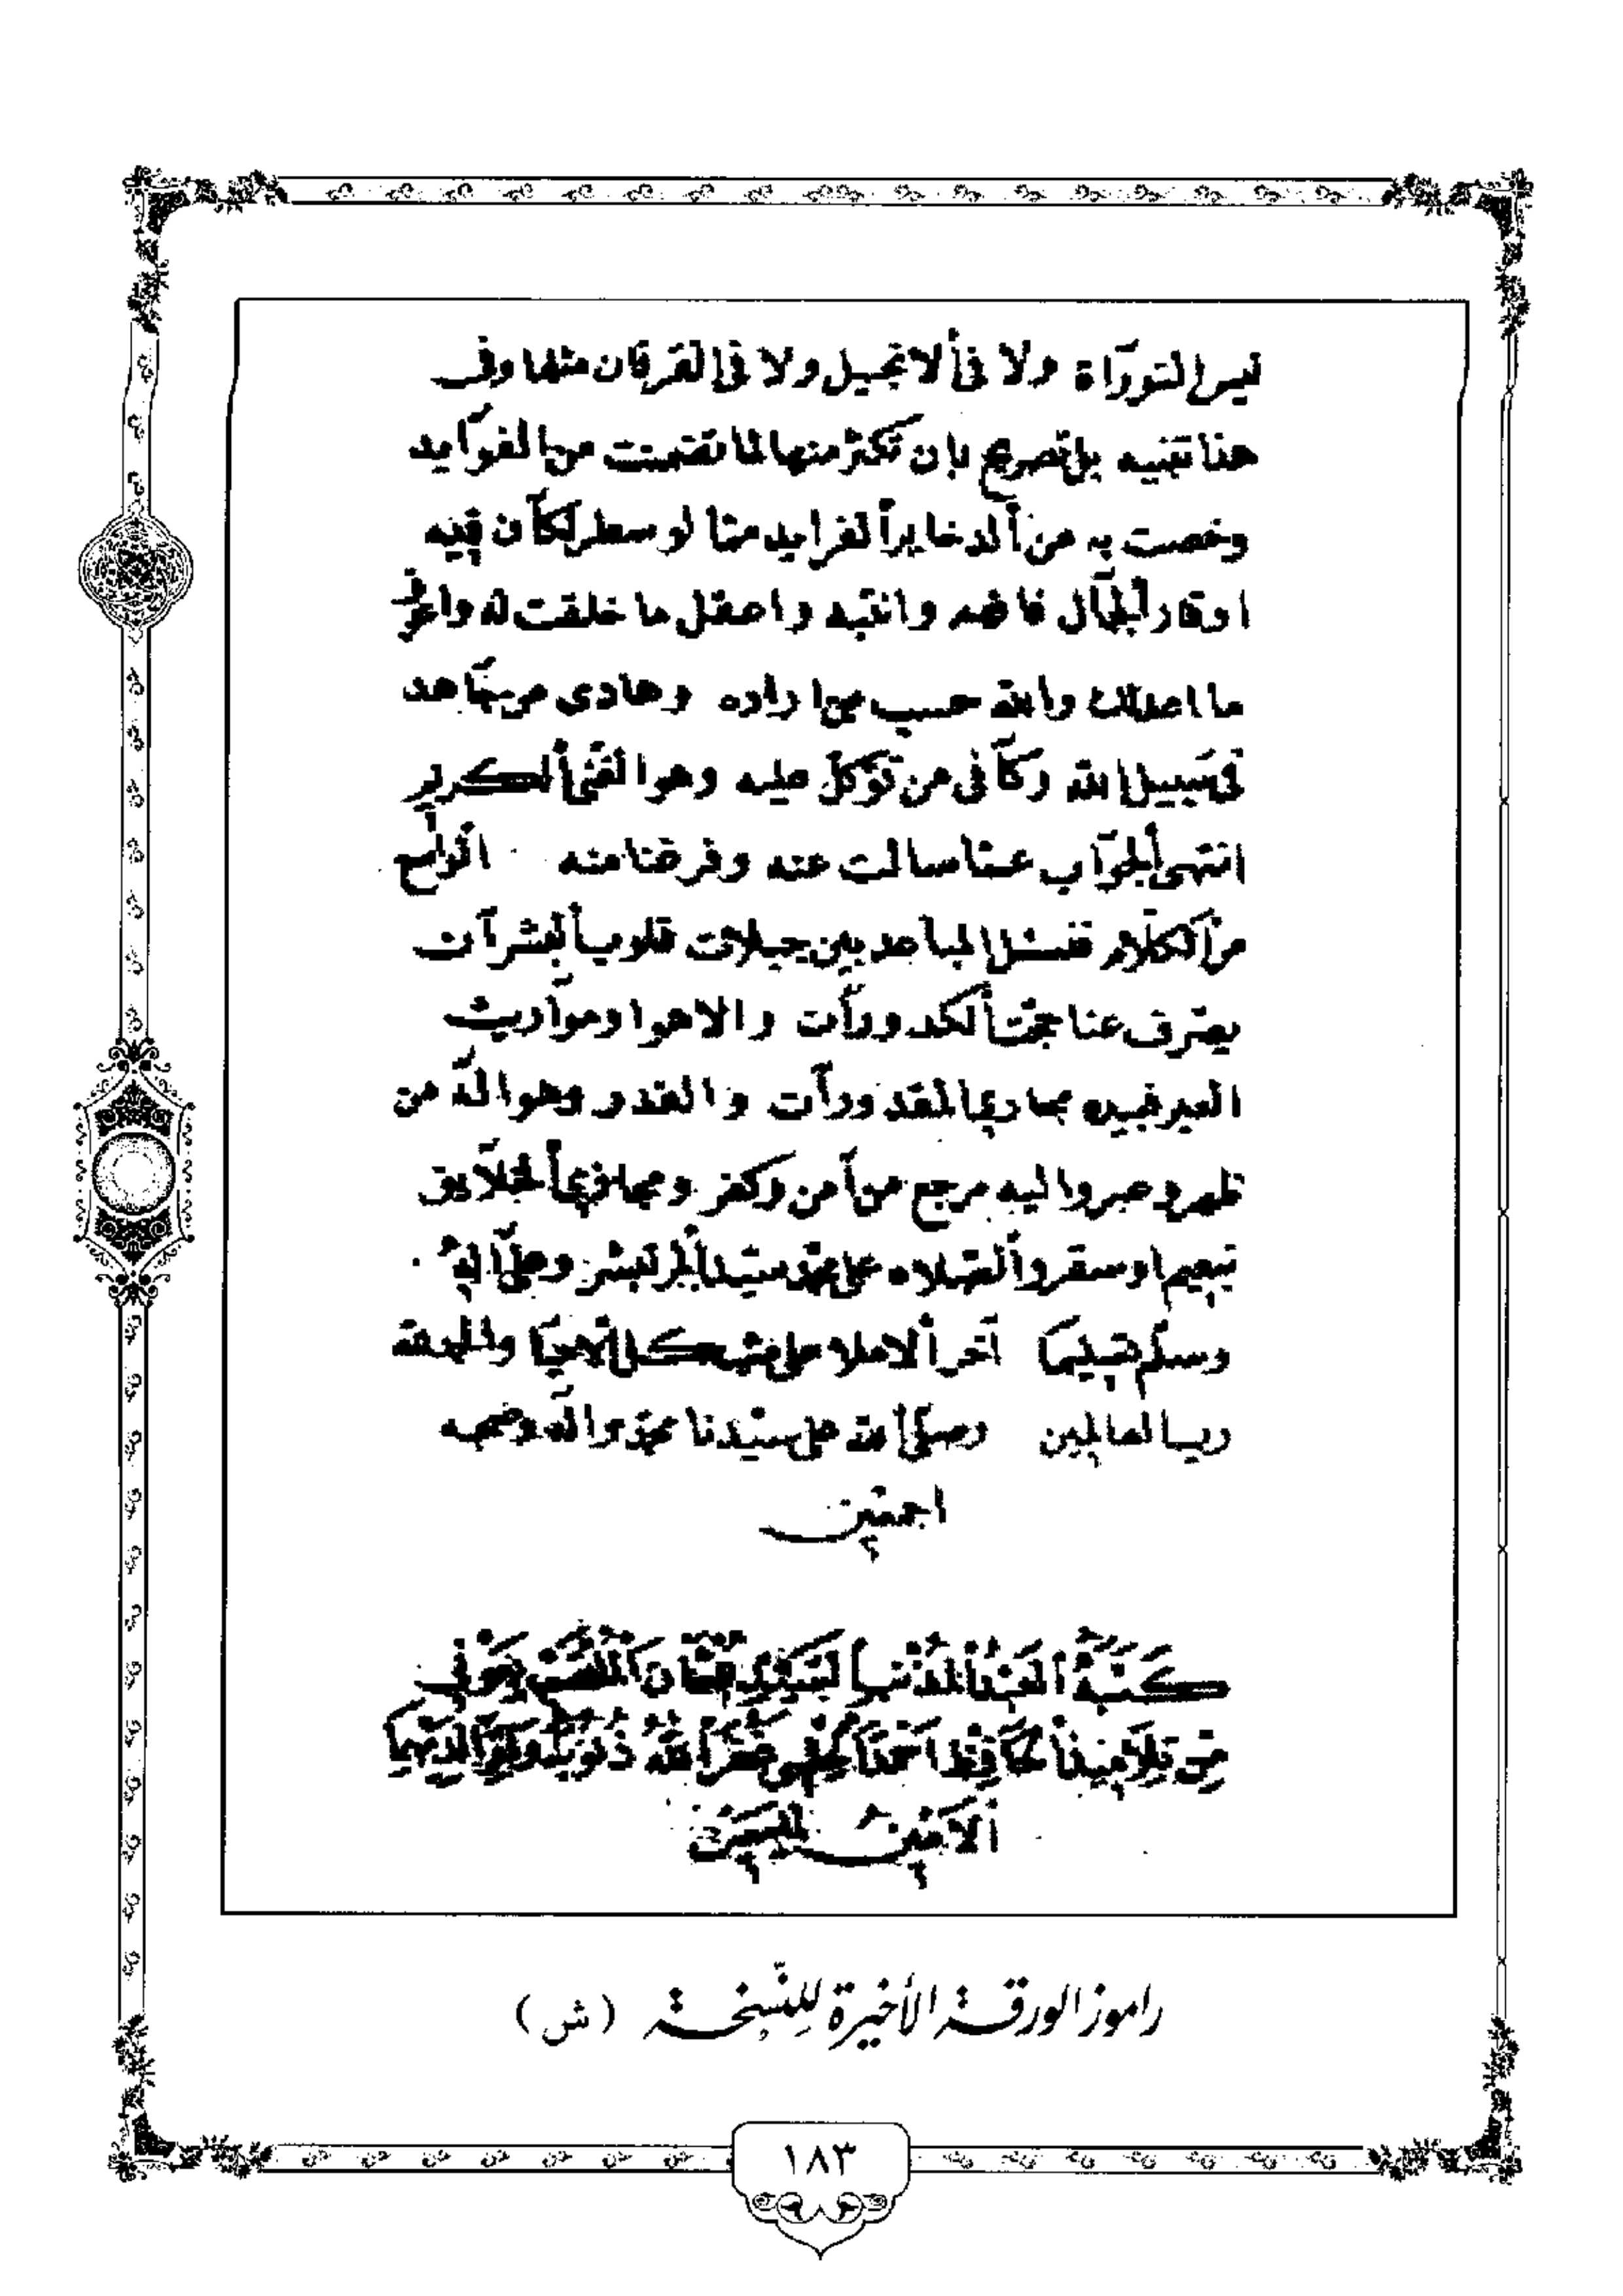 ليس في التوراة ولا في الانجيل ولا في الفرقان مثلها وفي
هذا تنبيه بل تصريح بان تكثر منها لما تضمنت من الفوآيد
وخصت به من الدخاير الفرايد مما لو سطر لكان فيه
اوقار الجمال فافهم وانتبه واعقل ما خلقت له واعرف
ما اعد لك والله حسب من اراده وهادى من جاهد
في سبيل الله وكآفى من توكل عليه وهو الغني الكريم
انتهى الجوآب عما سالت عنه وفرغنا منه
من الكلام فنسئل المباعد بين جبلات قلوب البشر ان
يصرف عنا الكدورآت والاهوا وموآريث
بمجاري المقدورآت والقدر وهو اله من
ظهر وعبر واليه مرجع من آمن وكفر ومجازي الخلآيق
بنعيم او سقر والصلاه على محمد سيد المر تبشر وعلى اله
وسلم تسليما آخر الاملا والحمد لله
رب العالمين وصلى الله على سيدنا محمد واله وصحبه
اجمعين
كتبه العبد المذنب عثمان
من تلاميذ الحافظ احمد غفر الله ذنوبه
الامين
راموز الورقة الأخيرة للنسخة (ش)
١٨٣